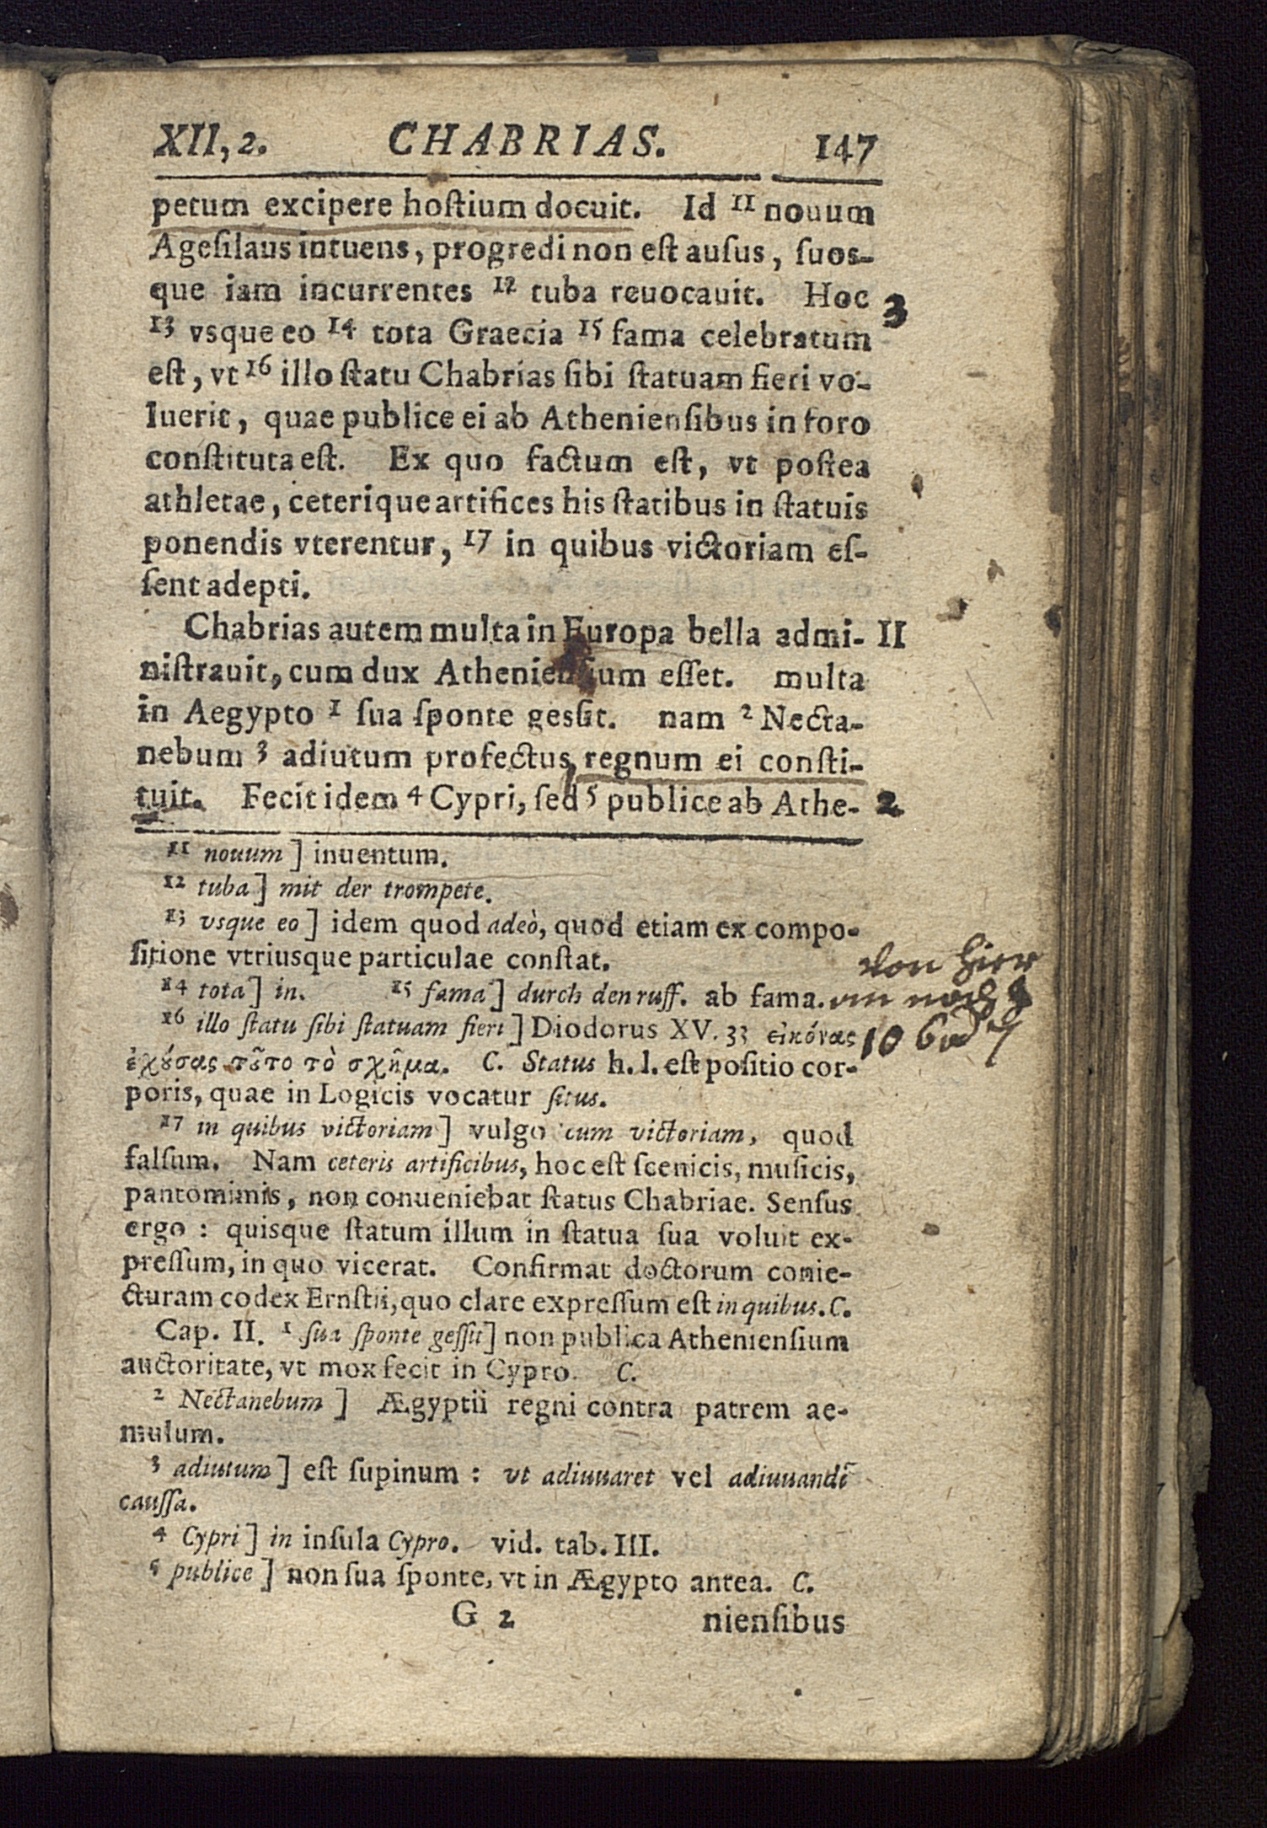 XII, 2. CHABRIAS. 147
petum excipere hoſtium docuit. Id 11 nouum
Ageſilaus intuens, progredi non eſt auſus, ſuos-
que iam incurrentes 12 tuba reuocauit. Hoc 3
13 vsque eo 14 tota Graecia 15 fama celebratum
eſt, vt 16 illo ſtatu Chabrias ſibi ſtatuam fieri vo-
luerit, quae publice ei ab Athenienſibus in foro
conſtituta eſt. Ex quo factum eſt, vt poſtea
athletae, ceterique artifices his ſtatibus in ſtatuis
ponendis vterentur, 17 in quibus victoriam eſ-
ſent adepti.
Chabrias autem multa in Europa bella admi- II
niſtrauit, cum dux Athenienſium eſſet. multa
in Aegypto 1 ſua ſponte geſſit. nam 2 Necta-
nebum 3 adiutum profectus, regnum ei conſti-
tuit. Fecit idem 4 Cypri, ſed 5 publice ab Athe- 2
11 nouum ] inuentum.
12 tuba ] mit der trompete.
13 vsque eo ] idem quod adeò, quod etiam ex compo-
ſitione vtriusque particulae conſtat.
von hier
14 tota ] in. 15 fama ] durch den ruff. ab fama.
16 illo ſtatu ſibi ſtatuam fieri ] Diodorus XV. 33 εἰκόνας
10
ἐχȣ́σας τȣ͂το τὸ σχῆμα. C. Status h. l. eſt poſitio cor-
poris, quae in Logicis vocatur ſitus.
17 in quibus victoriam ] vulgo cum victoriam, quod
falſum. Nam ceteris artificibus, hoc eſt ſcenicis, muſicis,
pantomimis, non conueniebat ſtatus Chabriae. Senſus
ergo : quisque ſtatum illum in ſtatua ſua voluit ex-
preſſum, in quo vicerat. Confirmat doctorum conie-
cturam codex Ernſtii, quo clare expreſſum eſt in quibus. C.
Cap. II. 1 ſua ſponte geſſit ] non publica Athenienſium
auctoritate, vt mox fecit in Cypro. C.
2 Nectanebum ] Ægyptii regni contra patrem ae-
mulum.
3 adiutum ] eſt ſupinum : vt adiuuaret vel adiuuandi
cauſſa.
4 Cypri ] in inſula Cypro. vid. tab. III.
5 publice ] non ſua ſponte, vt in Ægypto antea. C.
G 2 nienſibus